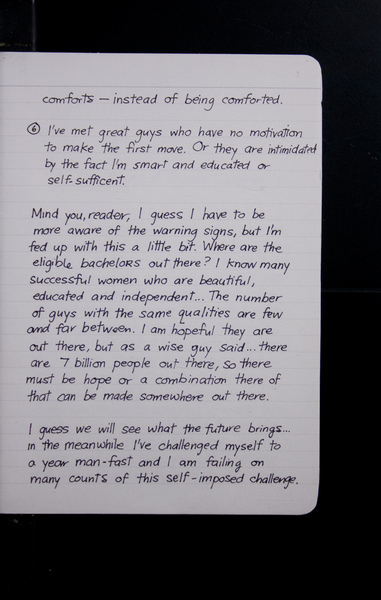 comforts — instead of being comforted.
⑥ I've met great guys who have no motivation
to make the first move. Or they are intimidated
by the fact I'm smart and educated or
self-sufficent.
Mind you, reader, I guess I have to be
more aware of the warning signs, but I'm
fed up with this a little bit. Where are the
eligible bachelors out there? I know many
successful women who are beautiful,
educated and independent... The number
of guys with the same qualities are few
and far between. I am hopeful they are
out there, but as a wise guy said... there
are 7 billion people out there, so there
must be hope or a combination there of
that can be made somewhere out there.
I guess we will see what the future brings...
in the meanwhile I've challenged myself to
a year man-fast and I am failing on
many counts of this self-imposed challenge.